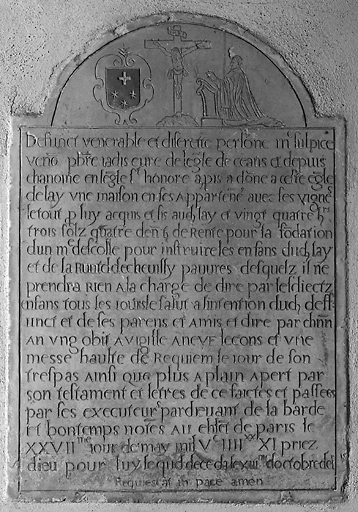 Defunct venerable et discrette personne mr sulpice
veno pbre iadis cure de leglé de ceans et depuis
chanoine en leglé st honore a pis a donē a ceste eglé
de lay vne maison en ses Appartenc avec ses vignes
le tout p luy acquis et sis aud lay et vingt quatre lt
trois solz quatre den de Rente pour la fodation
dun me descolle pour instruire les enfans dud lay
et de la Runte de cheuilly pauures desquelz il ne
prendra Rien A la charge de dire par lesdictz
enfans tous les iours le salut a lintention dud deff
unct et de ses parens et Amis et dire par chnn
An vng obit A vigille A neuf lecons et vne
messe haulte de Requiem le iour de son
trespas Ainsi que plus A plain Apert par
son testament et letres de ce faictes et passees
par ses executeurs pardeuant de la barde
et bontemps notes Au chlet de paris le
XXVII me iour de may mil Vc IIII XX XI priez
dieu pour luy le quel deceda le xiii me doctobre
Requiescat in pace amen